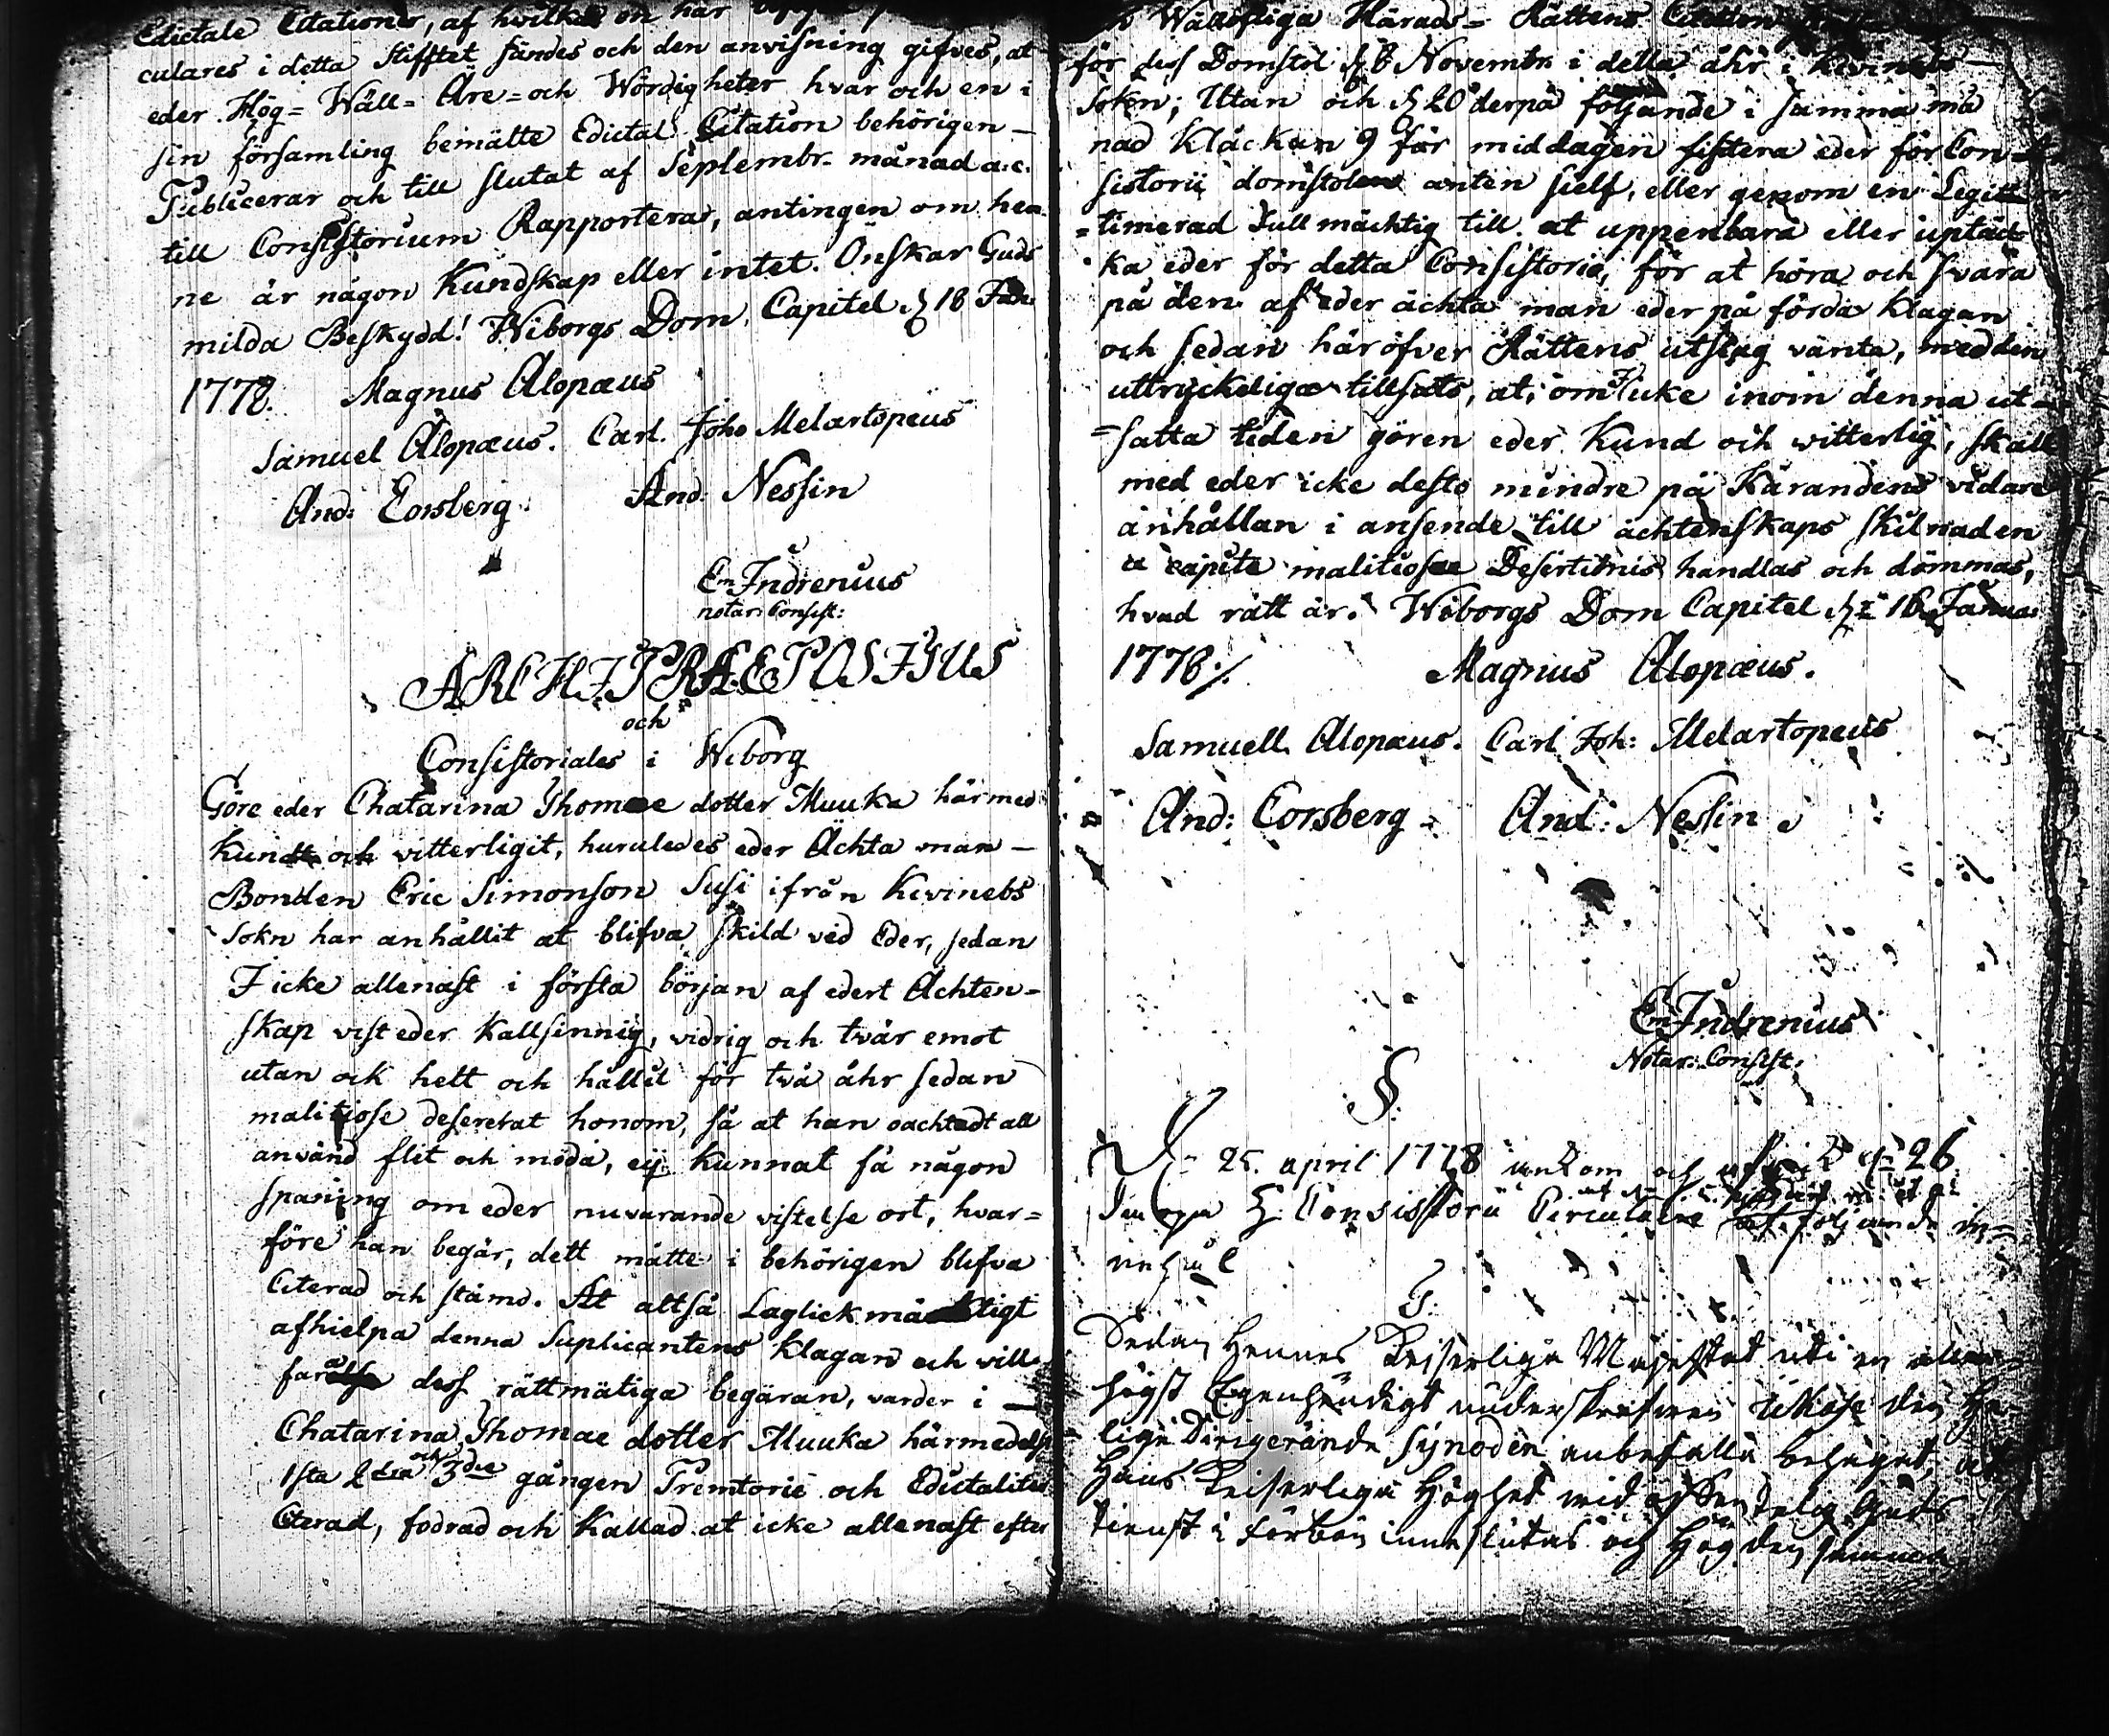 Edictale Citationer, af hvilka en har
culares i detta Stifftet sändes och den anvisning gifves, at
eder Hög= Wäll= Äre= och Wördigheter hvar och en i
sin församling bemälte Edictal Citation behörigen
Publicerar och till slutat af Septembr. månad a.c.
till Consistorium Rapporterar, antingen om hen
ne är någon Kundskap eller intet. Önskar Guds
milda Beskydd! Wiborgs Dom Capitel d 18
1778. Magnus Alopæus
Samuel Alopæus. Carl. Joh: Melartopeus
And: Corsberg. And: Nessin
Em Indrenius
notar: Consist:
ARCHIPRÆPOSITUS
och
Consistoriales i Wiborg
Göre eder Chatarina Thomae dotter Muuka härmed
Kundt och vitterligit, huruledes eder Ächta man
Bonden Eric Simonson Susi ifrån Kivinebs
Sokn har anhållit at blifva skild ved Eder, sedan
I icke allenast i första början af edert Ächten=
skap vist eder Kallsinnig, vidrig och tvär emot
utan ock helt och hållit för två åhr sedan
malitiose deseretat honom, så at han oachtadt all
använd flit och möda, ej Kunnat få någon
spaning om eder nuvarande vistelse ort, hvar=
före han begär, dett måtte i behörigen blifva
Citerad och stämd. At altså Laglickmäcktigt
afhielpa denna Suplicantens Klagan och vill
fara dess rättmätiga begäran, varder i
Chatarina Thomae dotter Muuka härmedelst
1sta 2dra och 3die gången Premtorie och Edictaliter
Citerad, fodrad och Kallad at icke allenast efter
Wällofliga Härads= Rättens Citation
för dess Domstol d 8 Novembr. i detta åhr i Kivinebs
Sokn; Utan och d 20 derpå följande i samma må
nad Klåckan 9 för middagen sistera eder för Con=
sistorii domstol anten sielf, eller genom en Legit
=timerad Fullmäcktig till at uppenbara eller uptäck
ka eder för detta Consistorio, för at höra och svara
på den af eder ächta man eder på förda klagan
och sedan häröfver Rättens utslag vänta, med den
uttryckeliga tillsats, at, om I icke inom denna ut=
=satta tiden gören eder Kund och witterlig, skall
med eder icke desto mindre på Kärandens vidare
anhållan i ansende till ächtenskaps skilnaden
a capite malitiosae Desertionis handlas och dömmas,
hvad rätt är. Wiborgs Dom Capitel d 18 Januar
1778./. Magnus Alopæus.
Samuell Alopæus. Carl Joh: Melartopeus
And: Corsberg. And: Neslin
Em Indrenius
Notar: Consist:
§.
D 25 april 1778 ankom och d 26
Consistorii Circulaire af följande in=
nehåll
S:
Sedan Hennes Keiserliga Majestet uti en aller=
högst Egenhändigt underskrefven Ukase den He=
lige Dirigerande Synoden anbefalla behagat, at
Hans Keiserliga Höghet vid offentelig Guds
tienst i förbön inneslutas och